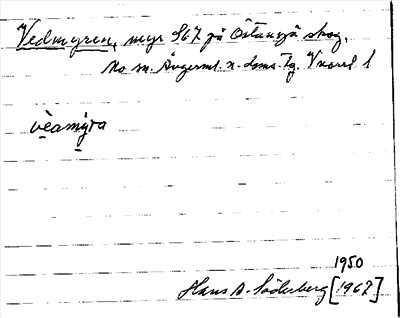 Vedmyren, myr S67 på Östansjö skog,
No sn. Ångerml. n. doms. Tg. Vnord 1
vèamỳra
1950
Hans A. Söderberg [1967]